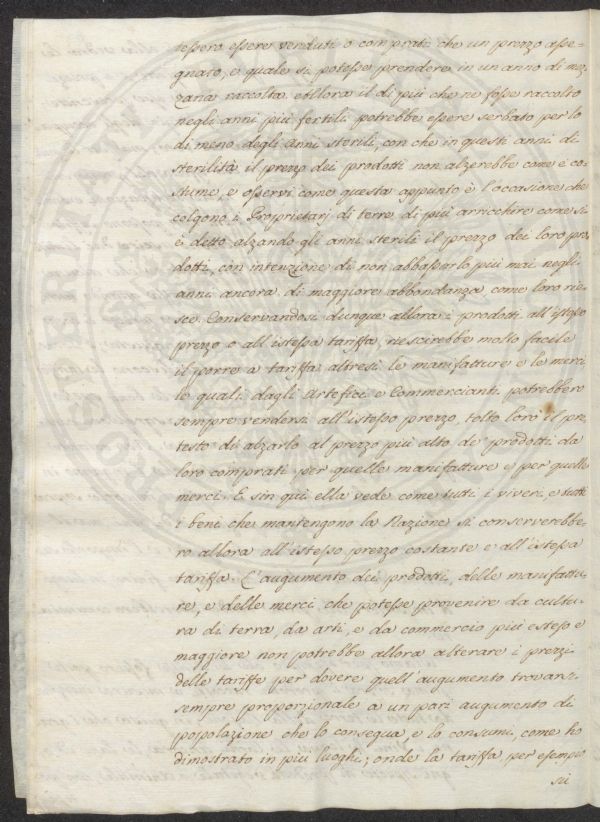 tessero essere venduti o comprati che un prezzo asse=
gnato, e quale si potesse prendere in un anno di mez,
zana raccolta. Allora il di più che ne fosse raccolto
negli anni più fertili potrebbe essere serbato per lo
di meno degli anni sterili, con che in questi anni di
sterilità il prezzo dei prodotti non alzerebbe come è co,
stume, e osservi come questa appunto è l'occasione che
colgono i Proprietarj di terre di più arricchire come si
è detto alzando gli anni sterili il prezzo dei loro pro,
dotti, con intenzione di non abbassarlo più mai negli
anni ancora di maggiore abbondanza come loro rie,
sce. Conservandosi dunque allora i prodotti all'istesso
prezzo o all'istessa tariffa, riescirebbe molto facile
il porre a tariffa altresì le manifatture e le merci
le quali dagli Artefici e Commercianti potrebbero
sempre vendersi all'istesso prezzo, tolto loro il pre,
testo di alzarlo al prezzo più alto de' prodotti da
loro comprati per quelle manifatture e per quelle
merci. E sin quì ella vede come tutti i viveri, e tutti
i beni che mantengono la Nazione si conserverebbe,
ro allora all'istesso prezzo costante e all'istessa
tariffa. L'augumento dei prodotti, delle manifattu,
re, e delle merci, che potesse provenire da cultu,
ra di terra, da arti, e da commercio più esteso e
maggiore non potrebbe allora alterare i prezzi
delle tariffe per dovere quell'augumento trovarsi
sempre proporzionale a un pari augumento di
popolazione che lo consegua, e lo consumi, come ho
dimostrato in più luoghi; onde la tariffa per esempio
sù
PROSPERITATI